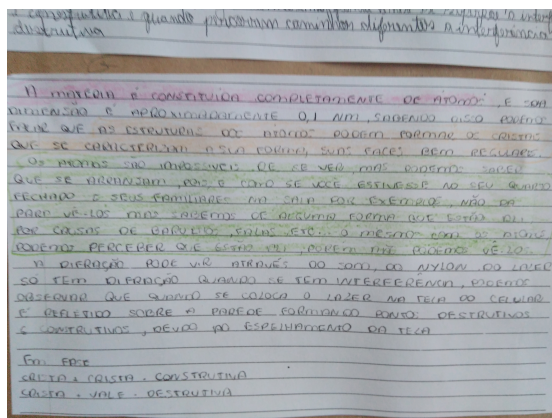 e construtiva e quando percorrem caminhos diferentes a interferência
destrutiva
A MATÉRIA É CONSTITUIDA COMPLETAMENTE DE ÁTOMOS, E SUA
DIMENSÃO É APROXIMADAMENTE 0,1 NM, SABENDO DISSO PODEMOS
DIZER QUE AS ESTRUTURAS DOS ÁTOMOS PODEM FORMAR OS CRISTAIS
QUE SE CARACTERIZAM A SUA FORMA, SUAS FACES BEM REGULARES.
OS ÁTOMOS SÃO IMPOSSÍVEIS DE SE VER, MAS PODEMOS SABER
QUE SE ARRANJAM, POIS É COMO SE VOCE ESTIVESSE NO SEU QUARTO
FECHADO E SEUS FAMILIARES NA SALA POR EXEMPLO, NÃO DA
PARA VÊ-LOS MAS SABEMOS DE ALGUMA FORMA QUE ESTÃO ALI
POR CAUSAS DE BARULHOS, FALAS, ETC... O MESMO COM OS ÁTOMOS
PODEMOS PERCEBER QUE ESTÃO ALI, POREM NÃO PODEMOS VÊ-LOS.
A DIFRAÇÃO PODE VIR ATRAVÉS DO SOM, DO NYLON, DO LAZER
SÓ TEM DIFRAÇÃO QUANDO SE TEM INTERFERENCIA, PODEMOS
OBSERVAR QUE QUANDO SE COLOCA O LAZER NA TELA DO CELULAR
É REFLETIDO SOBRE A PAREDE FORMANDO PONTOS DESTRUTIVOS
E CONSTRUTIVOS, DEVIDO AO ESPELHAMENTO DA TELA
Em FASE
CRISTA + CRISTA = CONSTRUTIVA
CRISTA + VALE = DESTRUTIVA